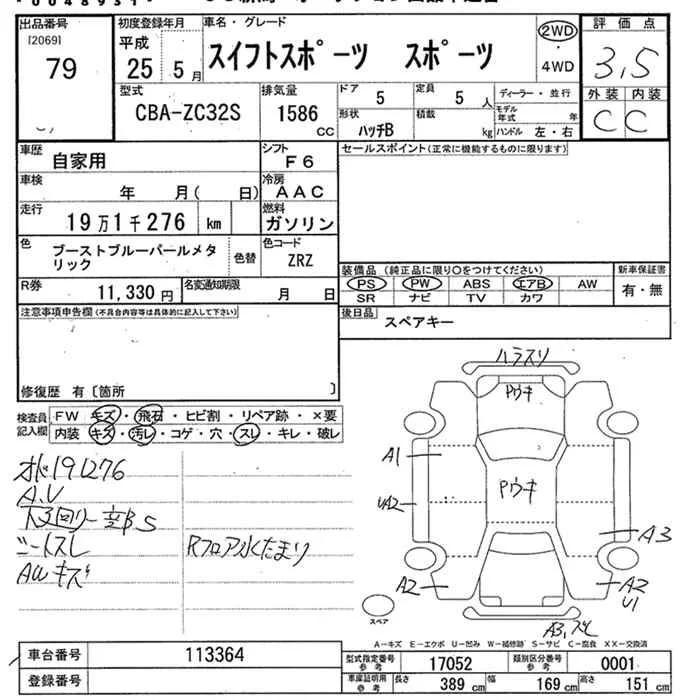 出品番号
[2069]
79
初度登録年月
平成
25 5月
車名・グレード
スイフトスポーツ スポーツ
2WD
・
4WD
評価点
3,5
外装 内装
C C
型式
CBA-ZC32S
排気量
1586
cc
ドア 5
定員 5 人
ディーラー・並行
形状
ハッチB
積載
kg
モデル年式 年
ハンドル 左・右
車歴
自家用
シフト
F6
セールスポイント(正常に機能するものに限ります)
車検
年 月( 日)
冷房
AAC
走行
19万1千276 km
燃料
ガソリン
色
ブーストブルーパールメタリック
色替
色コード
ZRZ
装備品(純正品に限り○をつけてください)
新車保証書
PS PW ABS エアB AW
有・無
SR ナビ TV カワ
R券
11,330 円
名変通知期限
月 日
注意事項申告欄(不具合内容等は具体的に記入して下さい)
後日品
スペアキー
修復歴 有〔箇所 〕
検査員記入欄
FW キズ・飛石・ヒビ割・リペア跡・×要
内装 キズ・汚レ・コゲ・穴・スレ・キレ・破レ
オド191276
A.U
下回リ一部S
シートスレ
AWキズ
Rフロア水たまり
ハラスリ
Pウキ
A1
Pウキ
UA2
A3
A2
A2
U1
スペア
A3,スレ
A−キズ E−エクボ U−凹み W−補修跡 S−サビ C−腐食 XX−交換済
車台番号
113364
登録番号
型式指定番号
参考
17052
類別区分番号
参考
0001
車庫証明用
参考
長さ 389 cm
幅 169 cm
高さ 151 cm